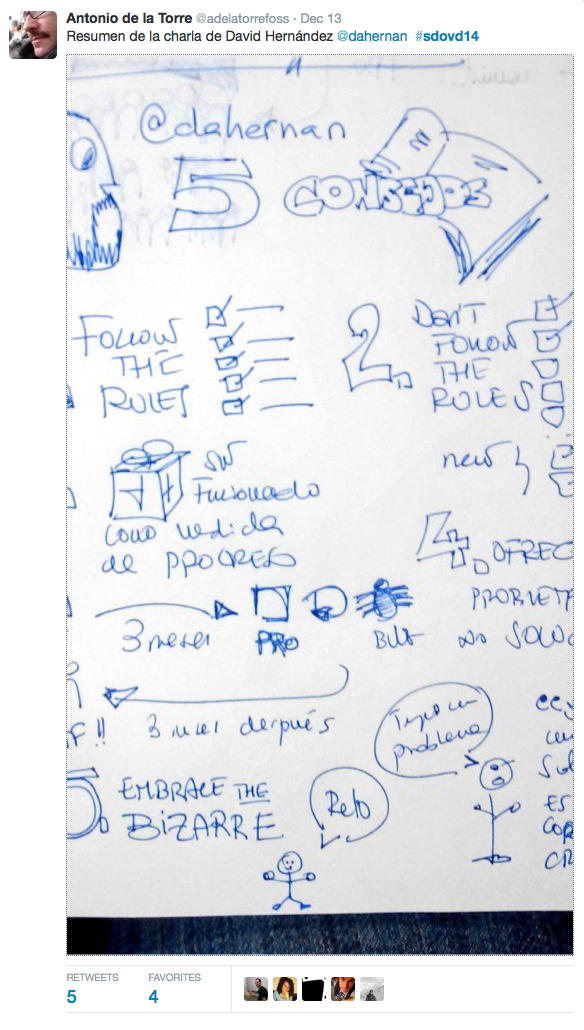 Antonio de la Torre @adelatorrefoss · Dec 13
Resumen de la charla de David Hernández @dahernan #sdovd14
@dahernan
5 CONSEJOS
FOLLOW
THE
RULES
2.
DON'T
FOLLOW
THE
RULES
SW
Funcionado
como medida
de PROGRESO
new
4. OFREC
PROBLEM
NO SOLU
3 meses
PRO
BUG
3 meses después
F!!
Tengo un
problema
5. EMBRACE THE
BIZARRE
Reto
ES
RETWEETS
5
FAVORITES
4